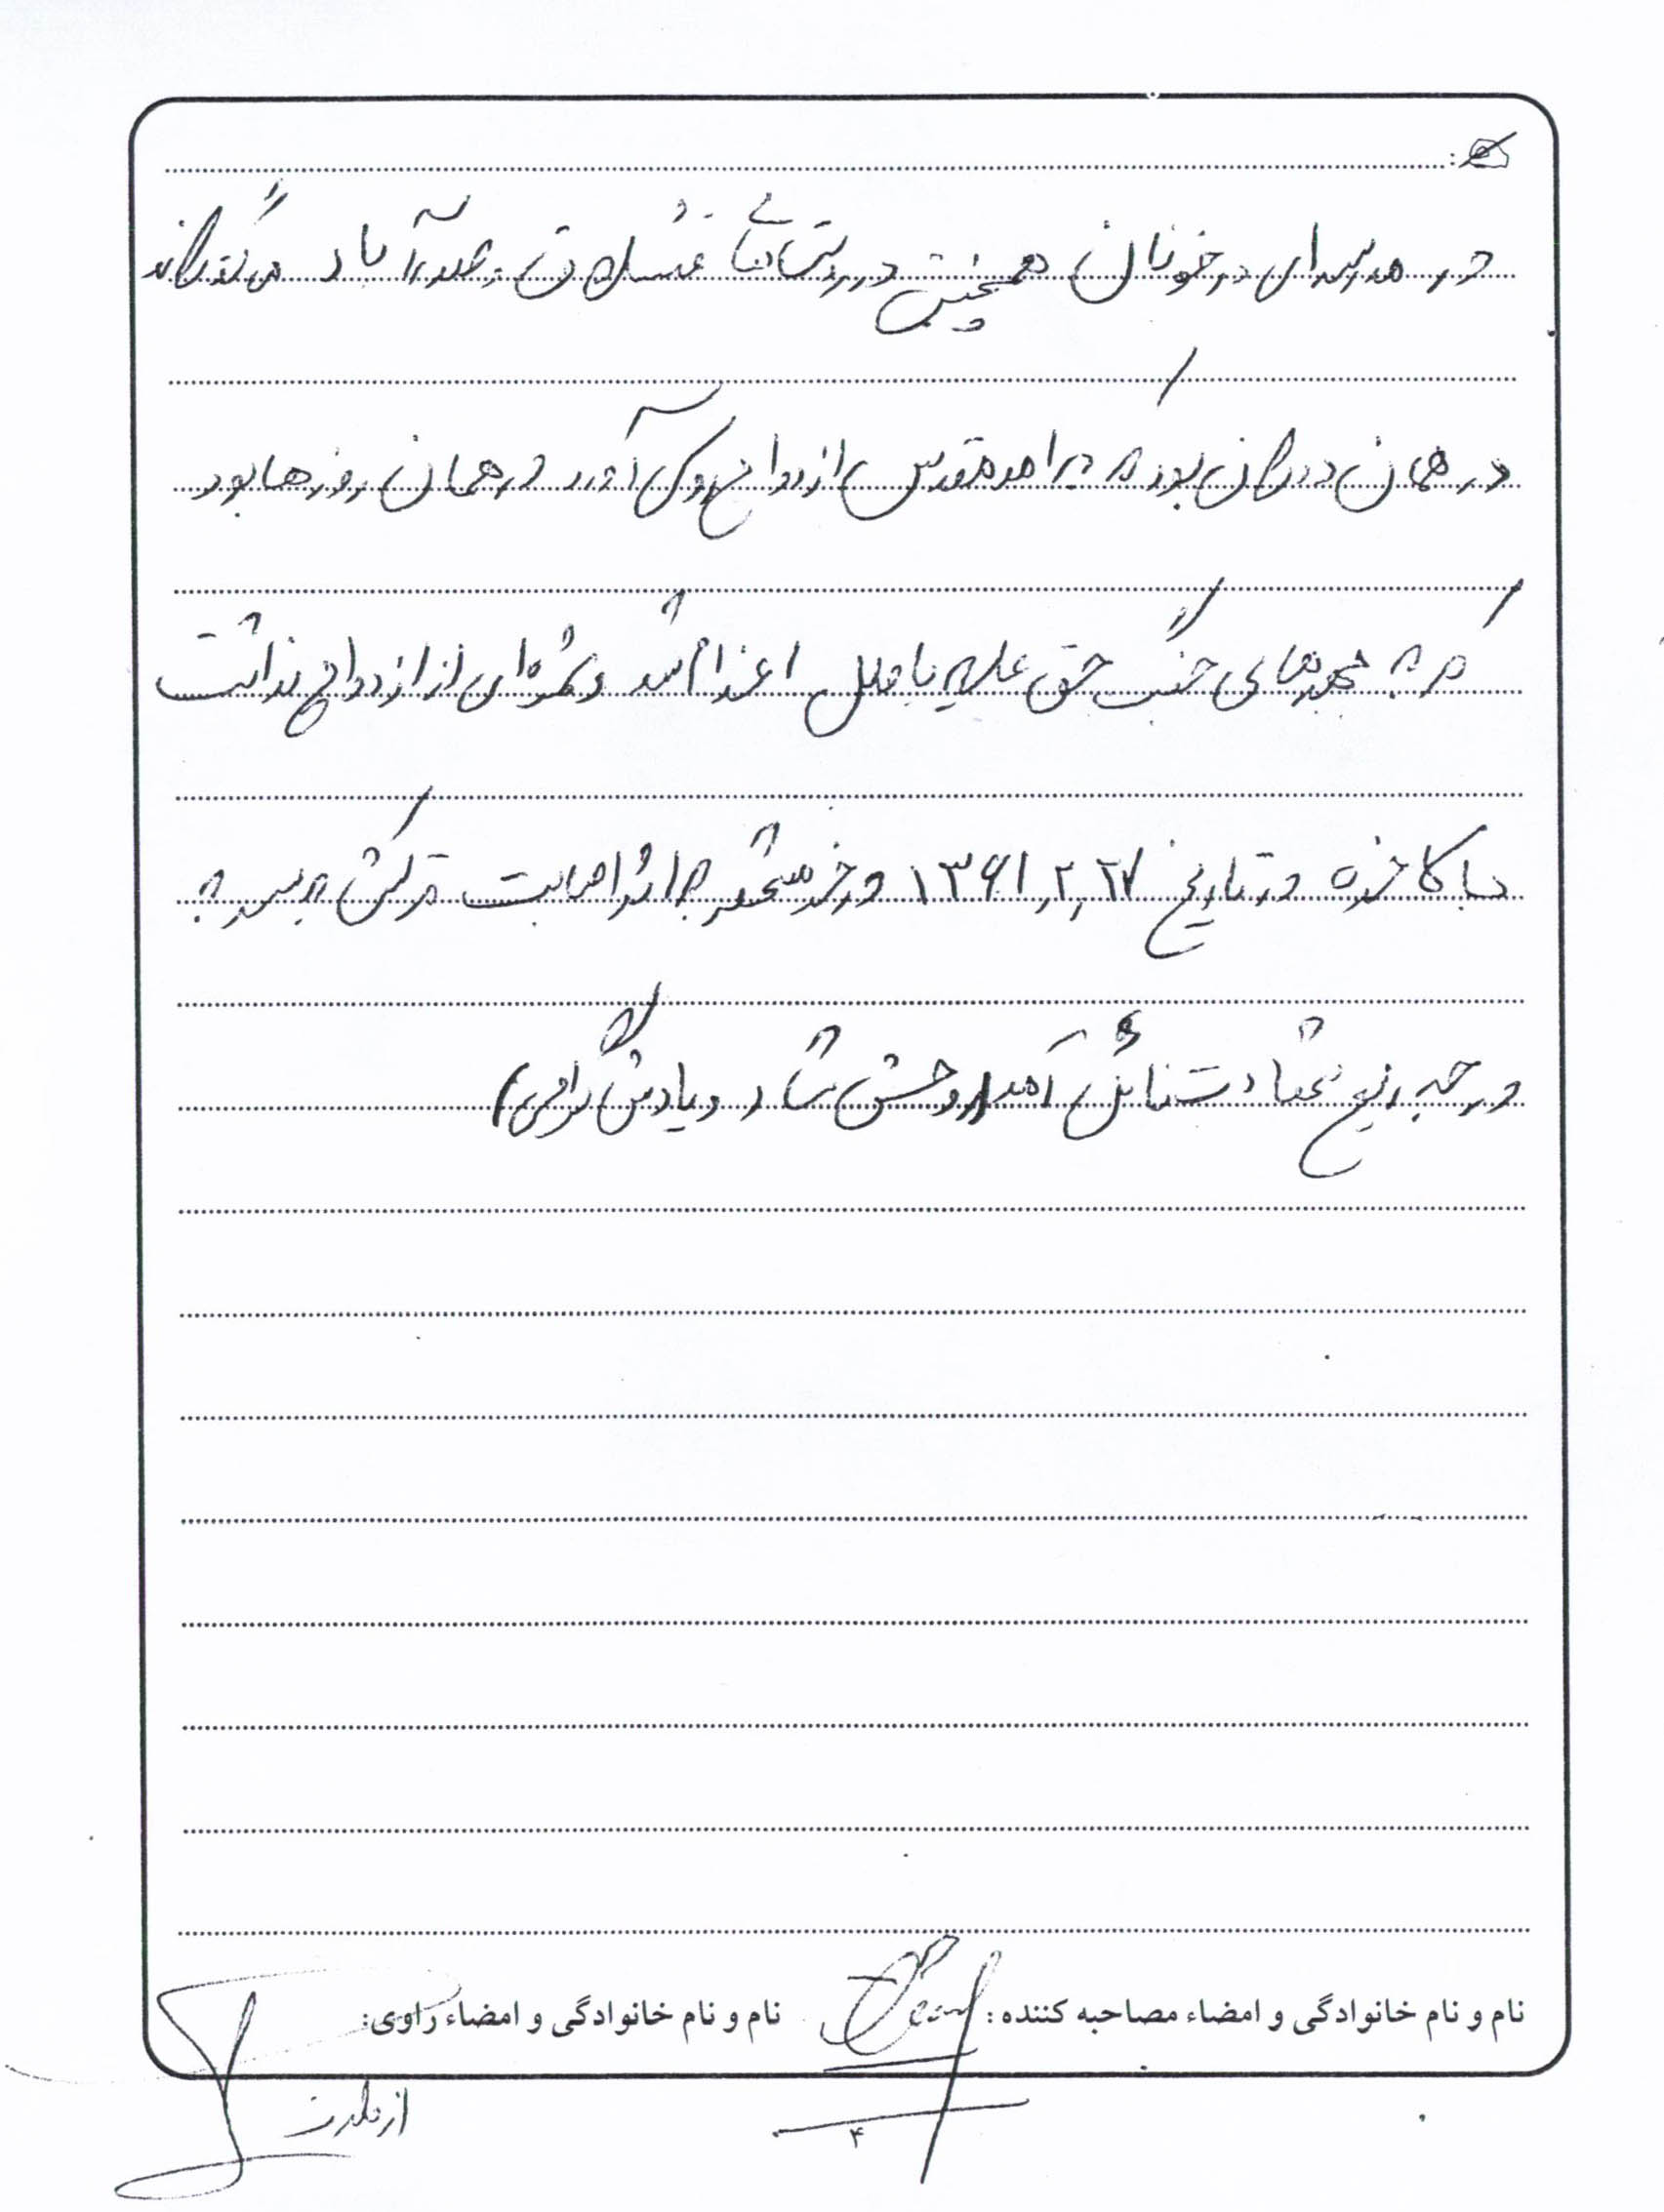 در مدرسه‌ای در خونان همچنین در روستاهای آباد می‌گذراند
در همان دوران بود که به امر مقدس ازدواج روی آورد در همان روزها بود
که به جبهه‌های جنگ حق علیه باطل اعزام شد و ثمره‌ای از ازدواج نداشت
در تاریخ ۱۳۶۱,۲,۲۷ در خرمشهر بر اثر اصابت ترکش به سر به
درجه رفیع شهادت نائل آمد (روحش شاد و یادش گرامی)
نام و نام خانوادگی و امضاء مصاحبه کننده: نام و نام خانوادگی و امضاء راوی:
۴